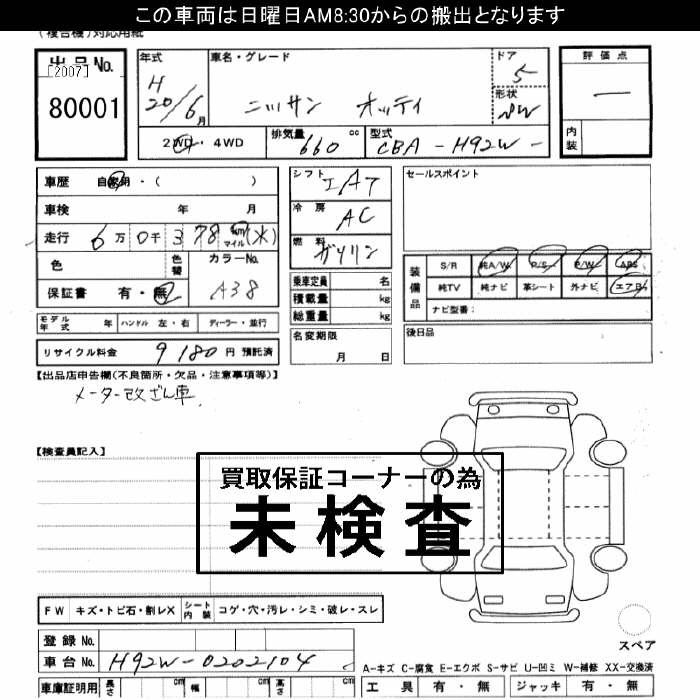 この車両は日曜日AM8:30からの搬出となります
(複合機)対応用紙
出品No.
[2007]
80001
年式
H
20/6月
車名・グレード
ニッサン オッティ
ドア
5
形状
評価点
―
内装
2WD・4WD
排気量 660 cc
型式 CBA-H92W-
車歴 自家用・( )
車検 年 月
走行 6万0千378 km マイル (*)
色
色替
カラーNo.
A38
保証書 有・無
シフト IAT
冷房 AC
燃料 ガソリン
乗車定員 名
積載量 kg
総重量 kg
セールスポイント
装備品
S/R 純A/W P/S P/W ABS
純TV 純ナビ 革シート 外ナビ エアB
ナビ型番:
モデル年式 年 ハンドル 左・右 ディーラー・並行
名変期限
月 日
後日品
リサイクル料金 9180 円 預託済
【出品店申告欄(不良箇所・欠品・注意事項等)】
メーター改ざん車
【検査員記入】
買取保証コーナーの為
未検査
FW キズ・トビ石・割レX シート内装 コゲ・穴・汚レ・シミ・破レ・スレ
スペア
登録No.
車台No. H92W-0202104
A-キズ C-腐食 E-エクボ S-サビ U-凹ミ W-補修 XX-交換済
車庫証明用 長さ cm 幅 cm 高さ cm
工具 有・無 ジャッキ 有・無